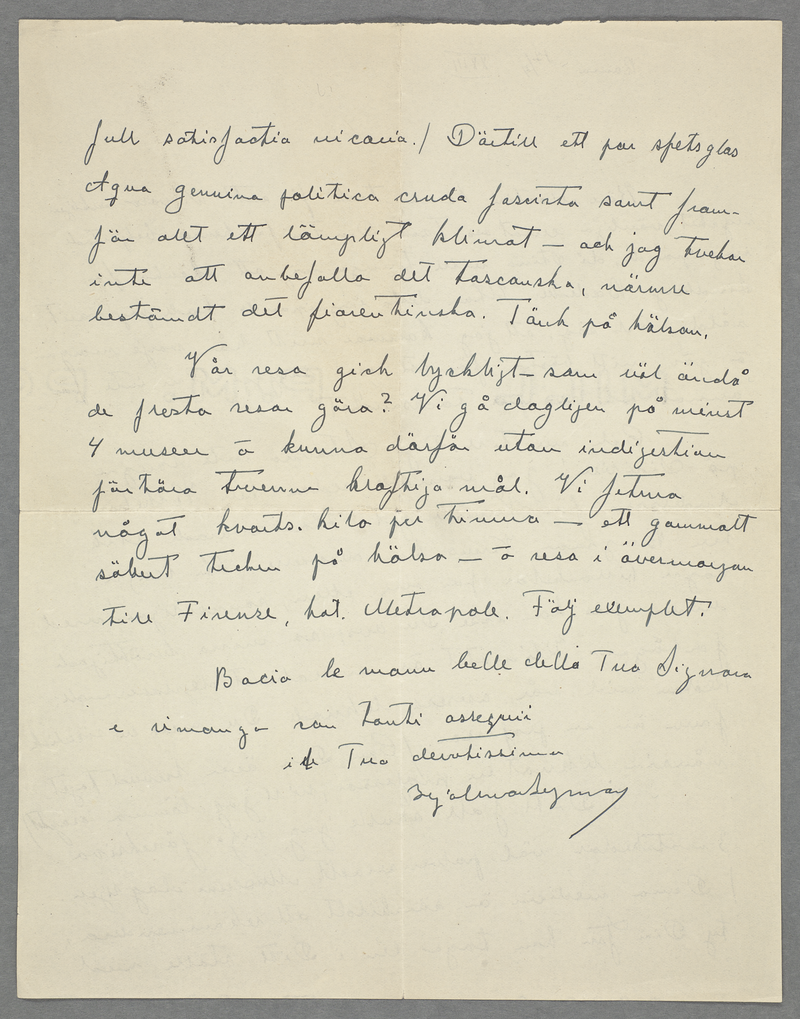 full satisfactia vicaria./ Därtill ett par spetsglas
Aqua genuina politica cruda fascista samt fram-
för alt ett lämpligt klimat – och jag tvekar
inte att anbefalla det toscanska, närmre
bestämdt det fiorentinska. Tänk på hälsan.
Vår resa gick lyckligt – som väl ändå
de flesta resor göra? Vi gå dagligen på minst
4 museer o kunna därför utan indigestion
förtära tvenne kraftiga mål. Vi fetma
något kvarts. kilo per timma – ett gammalt
säkert tecken på hälsa – o resa i övermorgon
till Firenze, hot. Metropole. Följ exemplet!
Bacio le manu belle della Tua Signora
e rimango con tanti ossequii
il Tuo devotissimo